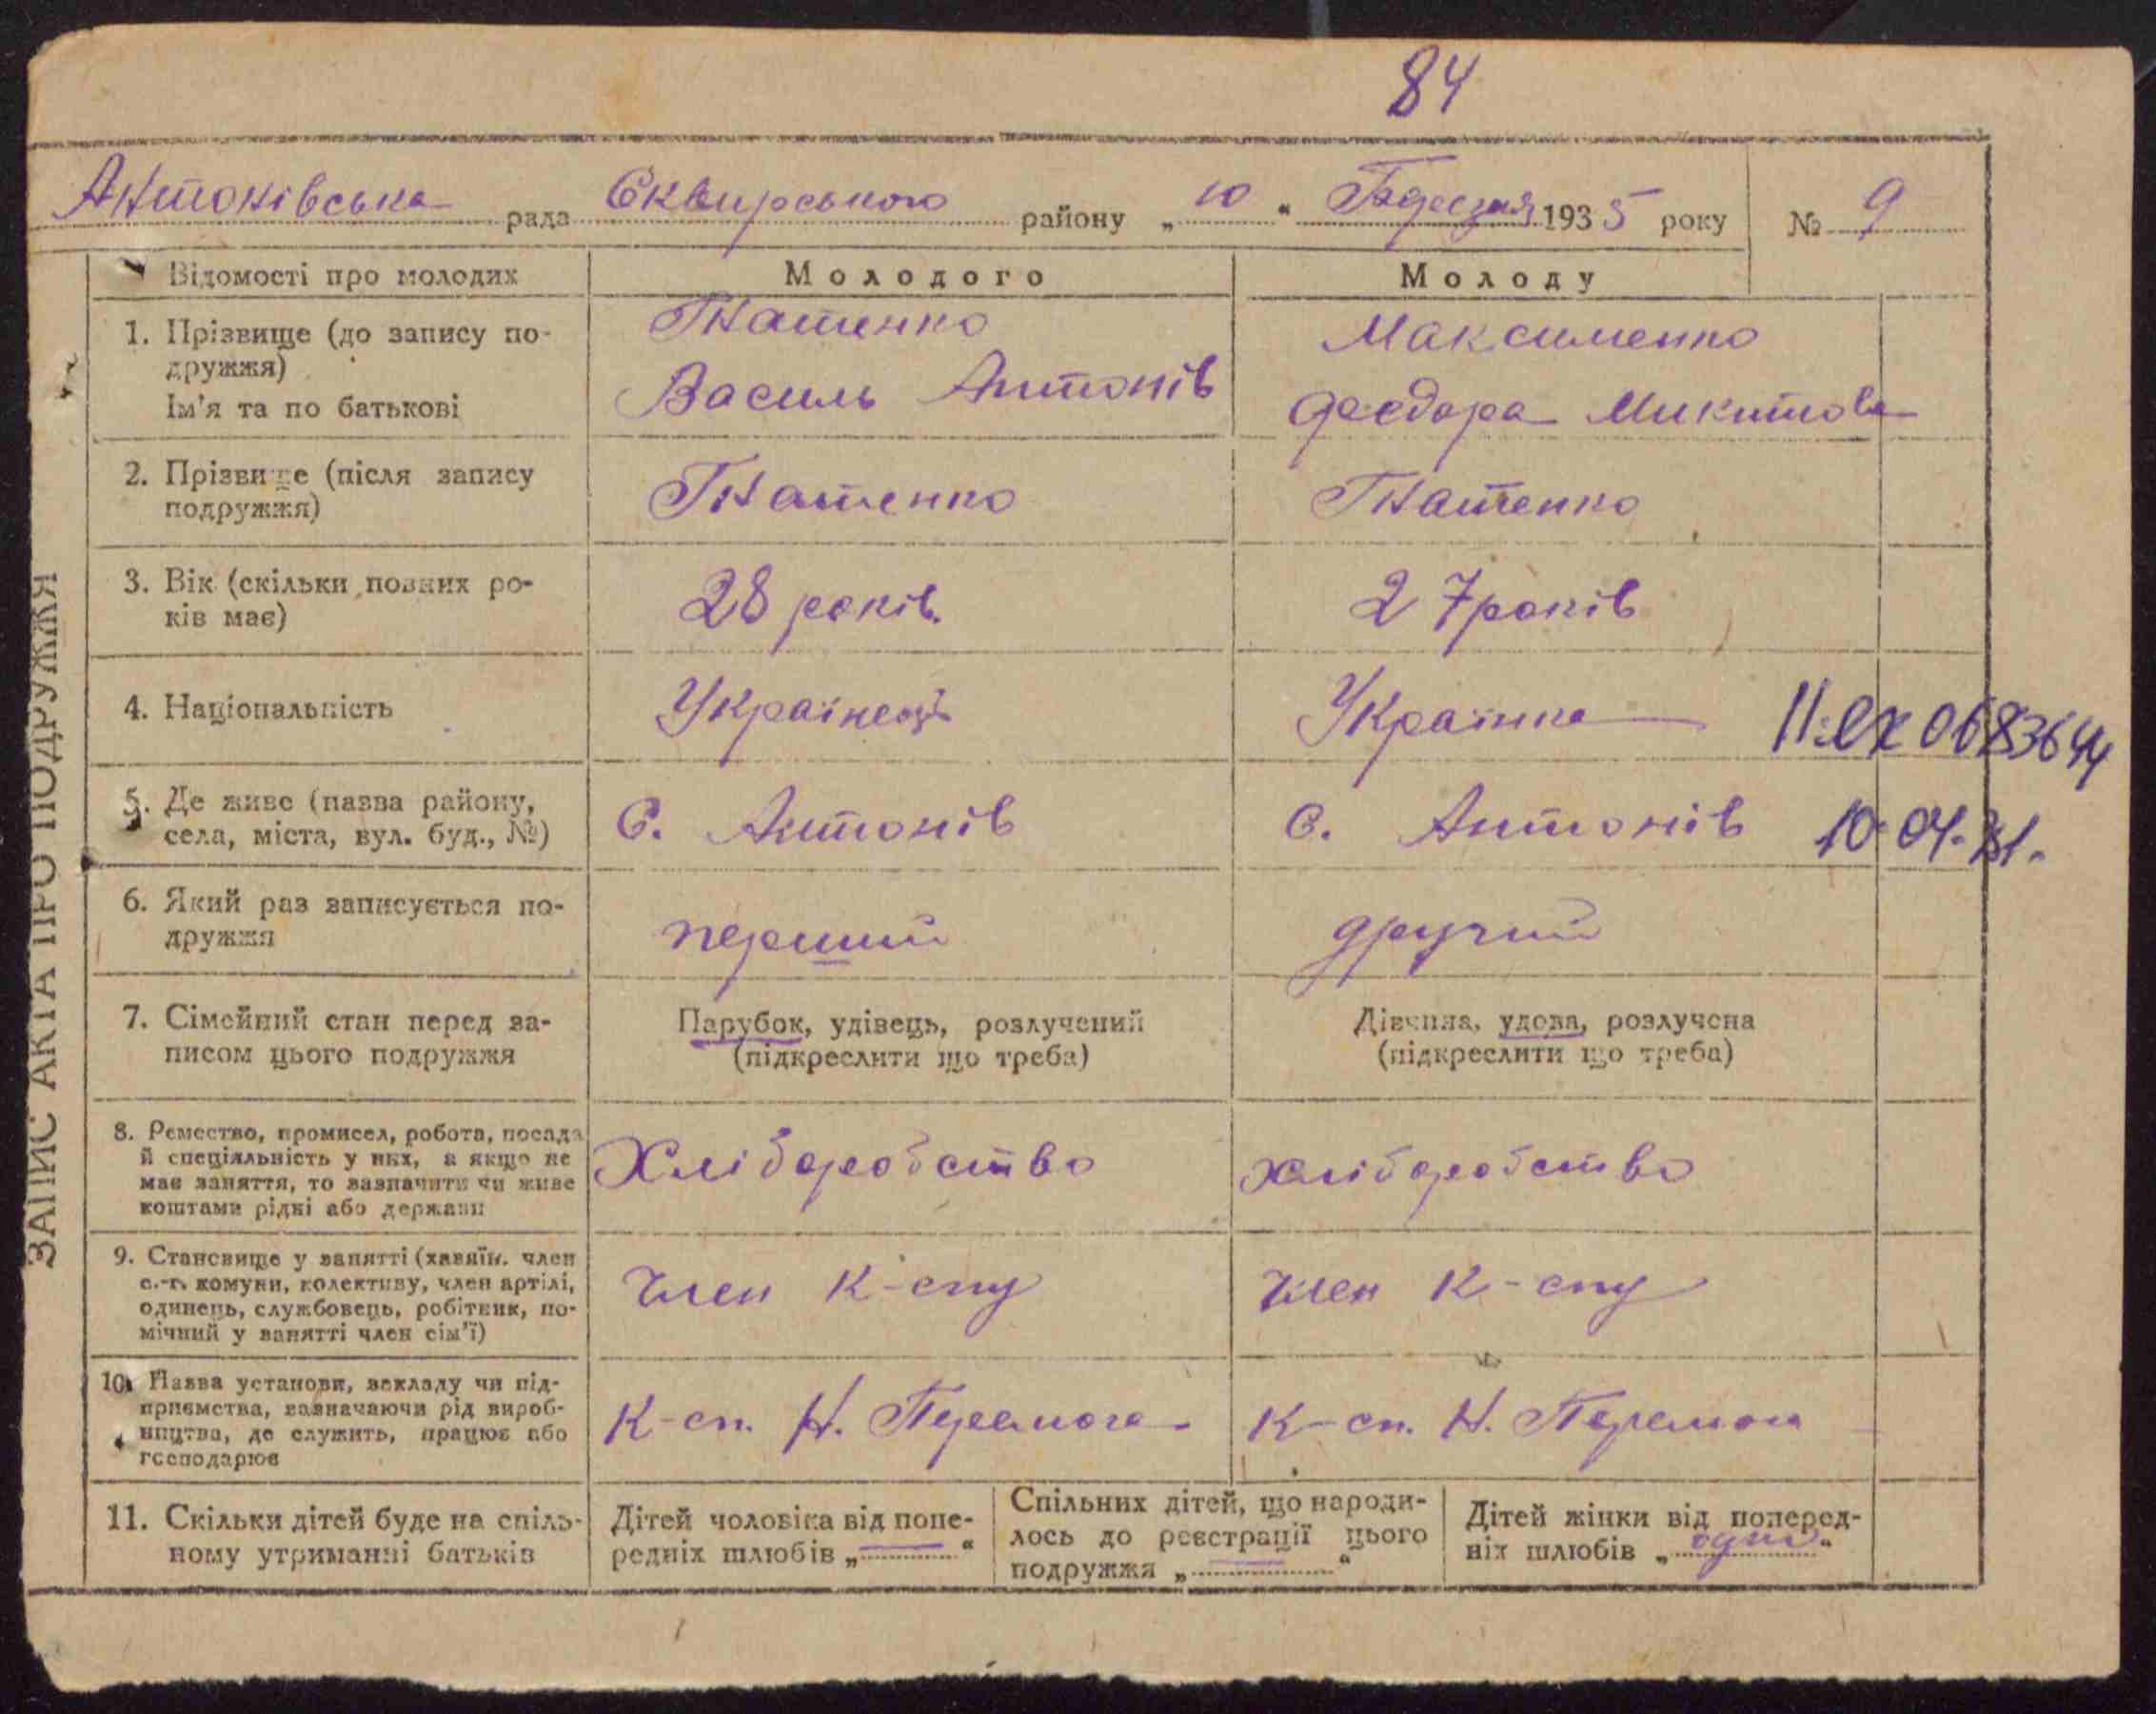 84
Антонівська рада Сквирського району „ 10 “ Березня 1935 року № 9
Відомості про молодих Молодого Молоду
1. Прізвище (до запису по-
дружжя)
Ім'я та по батькові
Гнатенко
Василь Антонів
Максименко
Феодора Микитова
2. Прізвище (після запису
подружжя)
Гнатенко
Гнатенко
3. Вік (скільки повних ро-
ків має)
28 років.
27 років
4. Національність
Українець
Українка
10.04.81.
5. Де живе (назва району,
села, міста, вул. буд., №)
С. Антонів
С. Антонів
6. Який раз записується по-
дружжя
перший
другий
7. Сімейний стан перед за-
писом цього подружжя
Парубок, удівець, розлучений
(підкреслити що треба)
Дівчина, удова, розлучена
(підкреслити що треба)
8. Ремество, промисел, робота, посада
й спеціяльність у них, а якщо не
має заняття, то зазначити чи живе
коштами рідні або держави
Хліборобство
хліборобство
9. Становище у занятті (хазяїн, член
с.-г. комуни, колективу, член артілі,
одинець, службовець, робітник, по-
мічний у занятті член сім'ї)
Член К-спу
Член К-спу
10. Назва установи, закладу чи під-
приємства, зазначаючи рід вироб-
ництва, де служить, працює або
господарює
К-сп. Н. Перемога
К-сп. Н. Перемога
11. Скільки дітей буде на спіль-
ному утриманні батьків
Дітей чоловіка від попе-
редніх шлюбів „ — “
Спільних дітей, що народи-
лось до реєстрації цього
подружжя „ — “
Дітей жінки від поперед-
ніх шлюбів „ одно “
ЗАПИС АКТА ПРО ПОДРУЖЖЯ